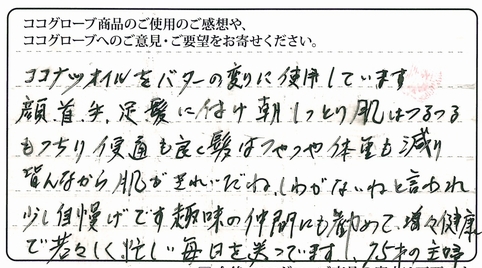 ココグローブ商品のご使用のご感想や、
ココグローブへのご意見・ご要望をお寄せください。
ココナツオイルをバターの変りに使用しています
顔、首、手、足、髪に付け朝しっとり肌はつるつる
もっちり便通も良く髪はつやつや体重も減り
皆んなから肌がきれいだね、しわがないねと言われ
少し自慢げです趣味の仲間にも勧めて、増々健康
で若々しく忙しい毎日を送っています!、75才の主婦